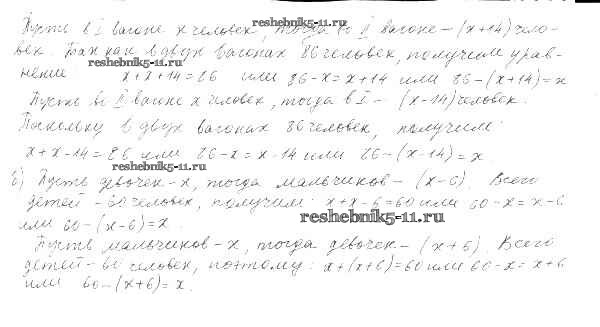 Пусть в I вагоне x человек, тогда во II вагоне – (x+14) чело-
reshebnik5-11.ru
век. Так как в двух вагонах 86 человек, получим урав-
reshebnik5-11.ru
нение x+x+14=86 или 86-x=x+14 или 86-(x+14)=x
Пусть во II вагоне x человек, тогда в I – (x-14) человек.
Поскольку в двух вагонах 86 человек, получим:
x+x-14=86 или 86-x=x-14 или 86-(x-14)=x.
reshebnik5-11.ru
б) Пусть девочек – x, тогда мальчиков – (x-6). Всего
детей – 60 человек, получим: x+x-6=60 или 60-x=x-6
reshebnik5-11.ru
или 60-(x-6)=x.
Пусть мальчиков – x, тогда девочек – (x+6). Всего
детей – 60 человек, поэтому: x+(x+6)=60 или 60-x=x+6
или 60-(x+6)=x.